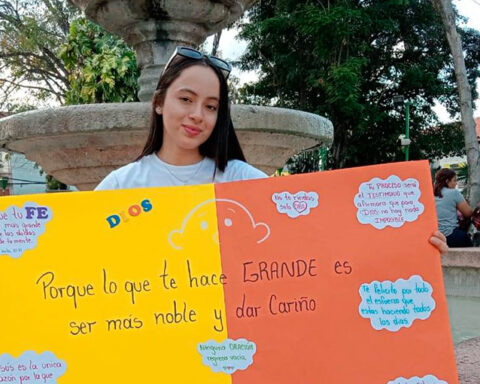 que tu FE
más grande
las dudas
de tormento
DIOS
No te rindas
solo DIOS
Tu PROCESO será
el TESTIMONIO que
afirmará que para
DIOS no hay nada
IMPOSIBLE
Porque lo que te hace GRANDE es
ser más noble y dar Cariño
Te felicito por todo
el esfuerzo que
estas haciendo todos
los días
Ninguna ORACIÓN
regresa vacía,
Jesús es la única
razón por la que